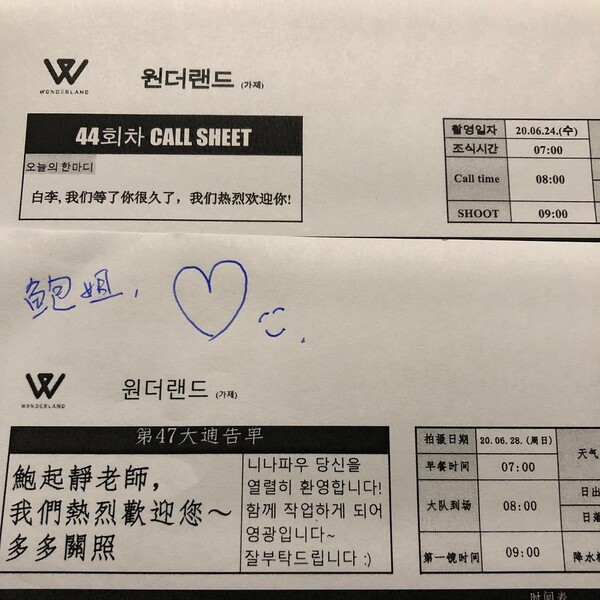 WONDERLAND
원더랜드 (가제)
44회차 CALL SHEET
오늘의 한마디
白李, 我们等了你很久了，我们热烈欢迎你!
撮영일자 20.06.24.(수)
조식시간 07:00
Call time 08:00
SHOOT 09:00
鲍姐,
WONDERLAND
원더랜드 (가제)
第47大通告单
鮑起靜老師，
我們熱烈歡迎您～
多多關照
니나파우 당신을
열렬히 환영합니다!
함께 작업하게 되어
영광입니다~
잘부탁드립니다 :)
拍摄日期 20.06.28. (周日)
早餐时间 07:00
大队到场 08:00
第一镜时间 09:00
天气
日出
日落
降水
时间表